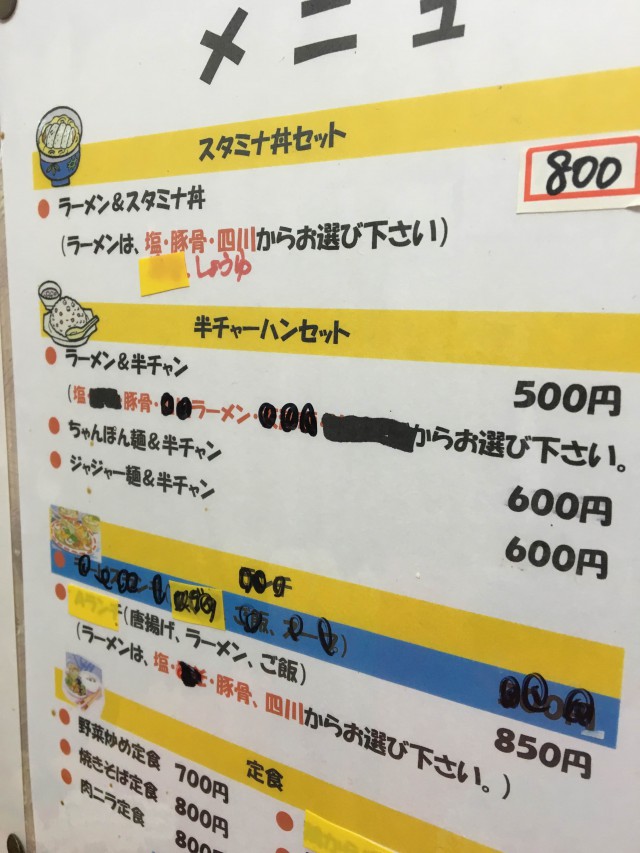 メニュ
スタミナ丼セット
800
ラーメン＆スタミナ丼
(ラーメンは、塩・豚骨・四川からお選び下さい)
、しょうゆ
半チャーハンセット
ラーメン＆半チャン
500円
(塩 豚骨・ ラーメン・ からお選び下さい。
ちゃんぽん麺＆半チャン
600円
ジャジャー麺＆半チャン
600円
Aランチ(唐揚げ、ラーメン、ご飯)
850円
(ラーメンは、塩・ 豚骨、四川からお選び下さい。)
定食
野菜炒め定食 700円
焼きそば定食 800円
肉ニラ定食 800